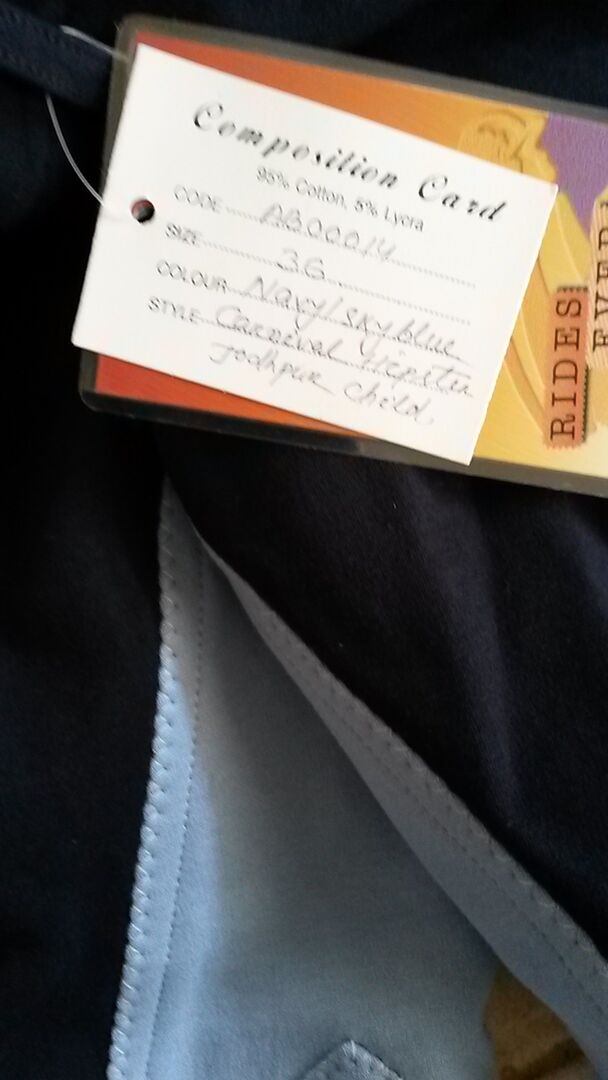 Composition Card
95% Cotton, 5% Lycra
CODE AB00014
SIZE 36
COLOUR Navy/skyblue
STYLE Carnival Hipster
Jodhpur Child
RIDES